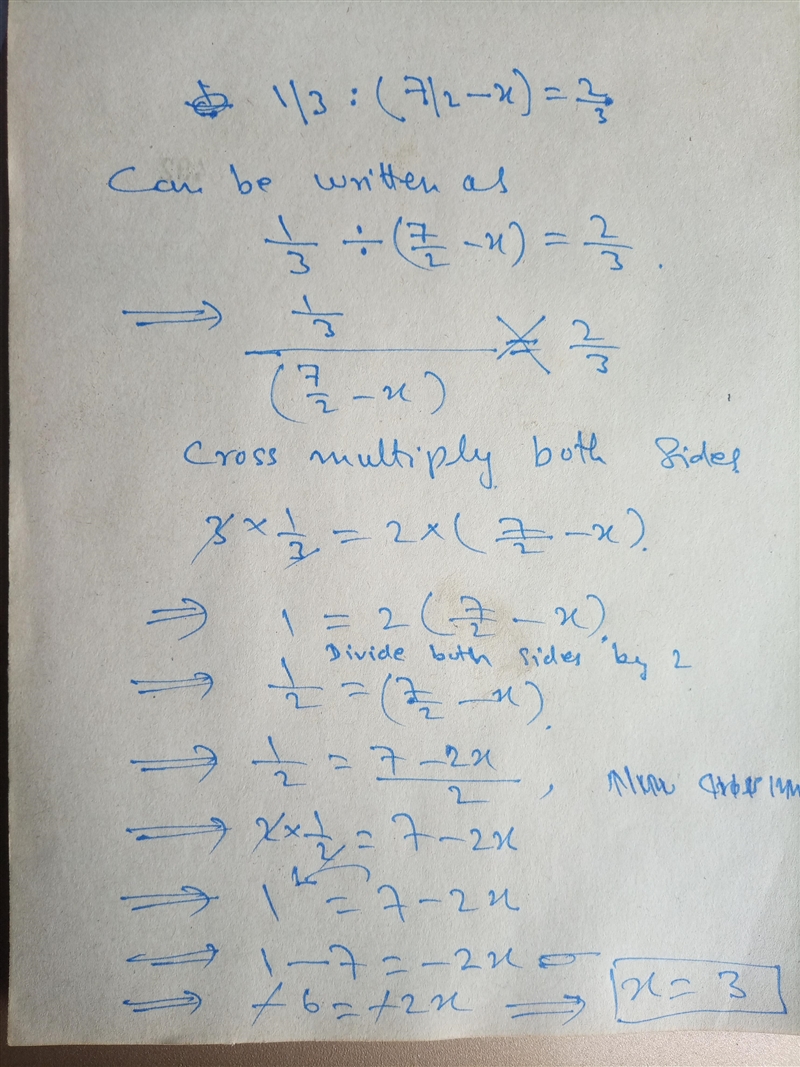 1/3 : (7/2 - x) = 2/3
Can be written as
1/3 ÷ (7/2 - x) = 2/3.
⟹ (1/3)/(7/2 - x) = 2/3
Cross multiply both sides
3 × 1/3 = 2 × (7/2 - x).
⟹ 1 = 2 (7/2 - x).
Divide both sides by 2
⟹ 1/2 = (7/2 - x).
⟹ 1/2 = (7 - 2x)/2,
⟹ 2 × 1/2 = 7 - 2x
⟹ 1 = 7 - 2x
⟹ 1 - 7 = -2x
⟹ -6 = -2x ⟹ x = 3